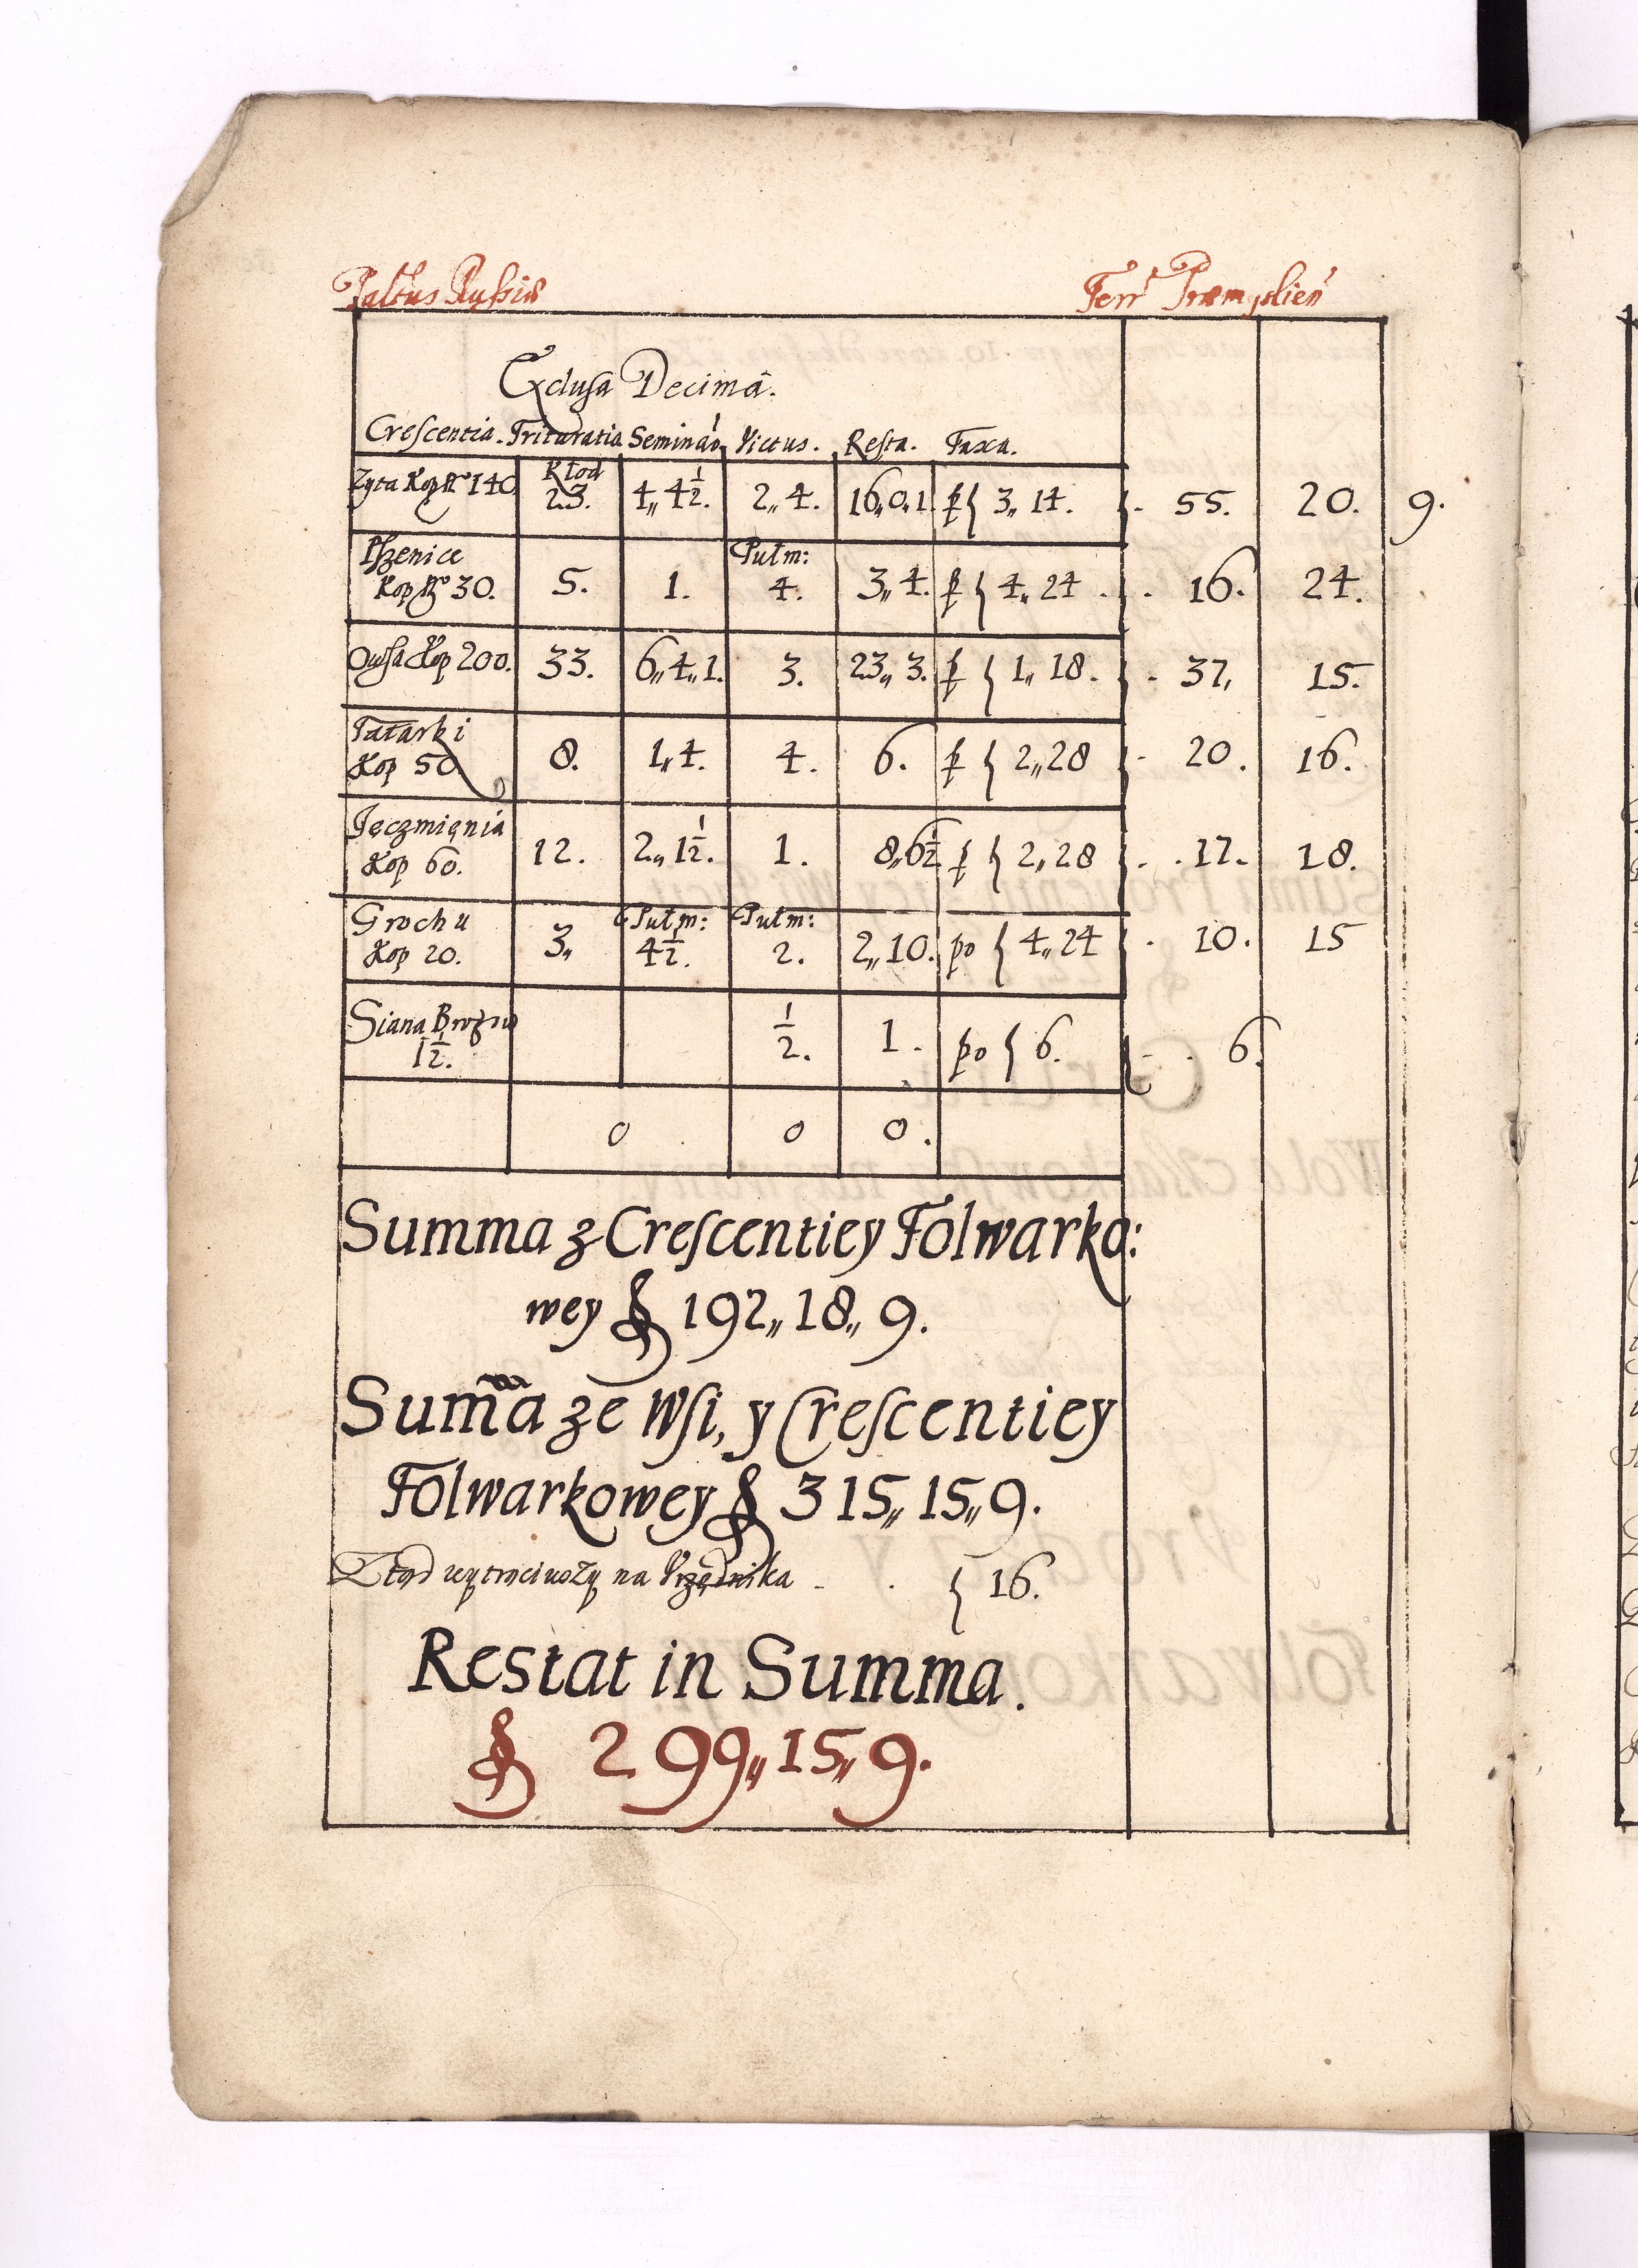 Paltus Russiæ Terr Præmyslień
Exclusa Decimâ.
Crescentia. Trituratia Seminaō Victus. Resta. Taxa.
Zyta Kop Nro 140 Kłod 23. 4„ 4½. 2„ 4. 16„0„1. p { 3„ 14. 55. 20. 9.
Pszenice Kop Nro 30. 5. 1. Pułm: 4. 3„ 4. p { 4„ 24 16. 24.
Owsa Kop 200. 33. 6„ 4„ 1. 3. 23„ 3. p { 1„ 18. 37, 15.
Tatarki Kop 50 8. 1„ 4. 4. 6. p { 2„ 28 20. 16.
Jęczmięnia Kop 60. 12. 2„ 1½. 1. 8„ 6½ p { 2„ 28 17. 18.
Grochu Kop 20. 3„ Pułm: 4½. Pułm: 2. 2„ 10. po { 4„ 24 10. 15
Siana Brogow 1½. ½. 1. po { 6. 6.
0 0 0.
Summa z Crescentiey Folwarko:
wey § 192„ 18„ 9.
Sum̃a ze Wsi, y Crescentiey
Folwarkowey § 315„ 15„ 9.
Ztąd wytrąciwszy na Vrzędnika { 16.
Restat in Summa.
§ 299„ 15„ 9.